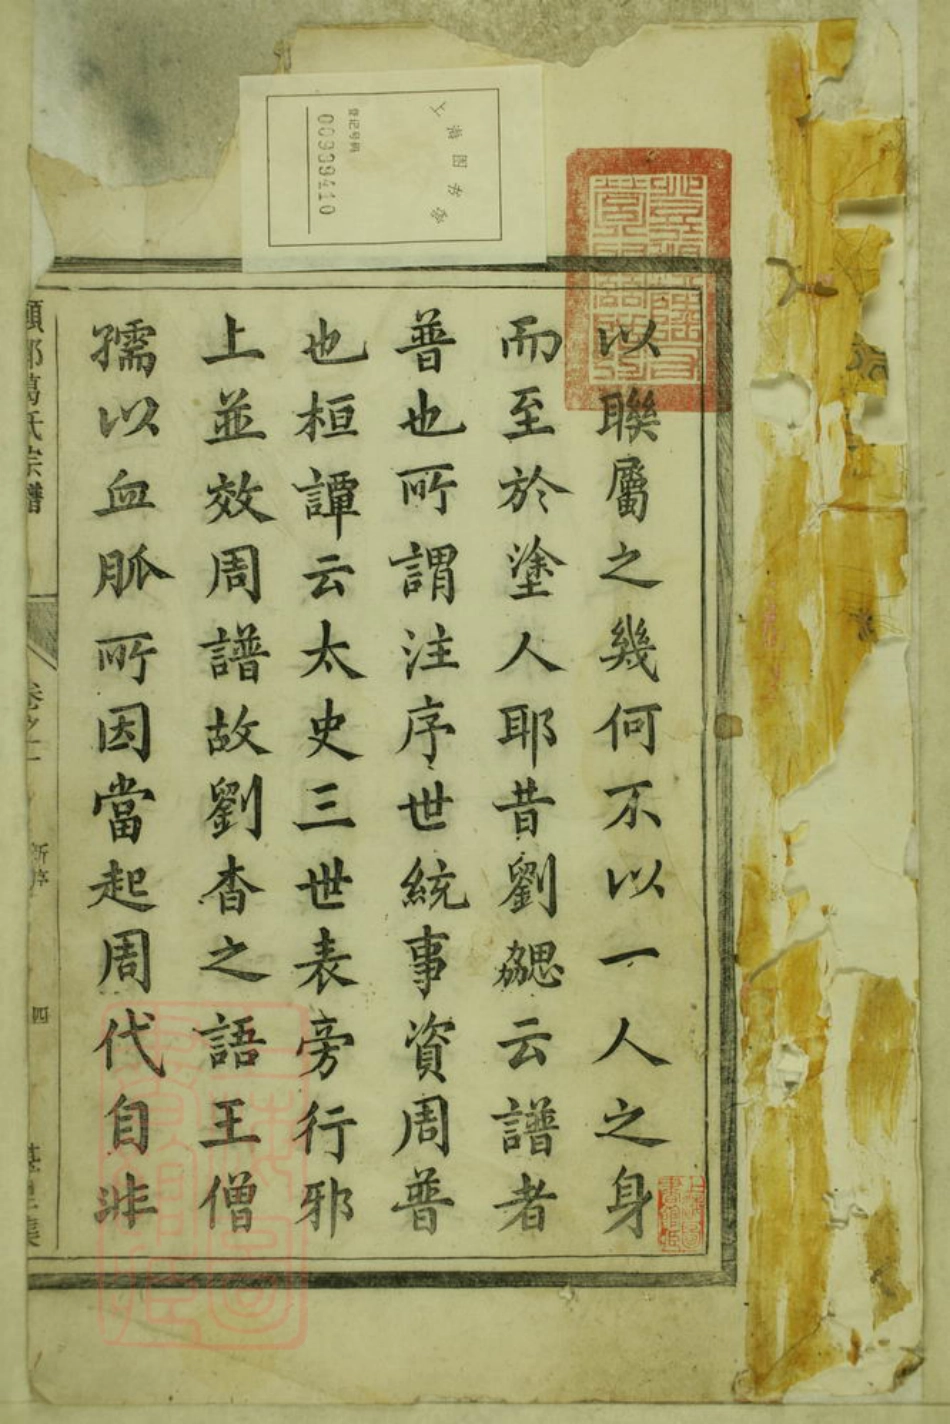 以聯屬之幾何不以一人之身
而至於塗人耶昔劉勰云譜者
普也所謂注序世統事資周普
也桓譚云太史三世表旁行邪
上並效周譜故劉杳之語王僧
孺以血脈所因當起周代自非
葛氏宗譜
卷之一
新序
四
上海图书馆
登记号码
009894410